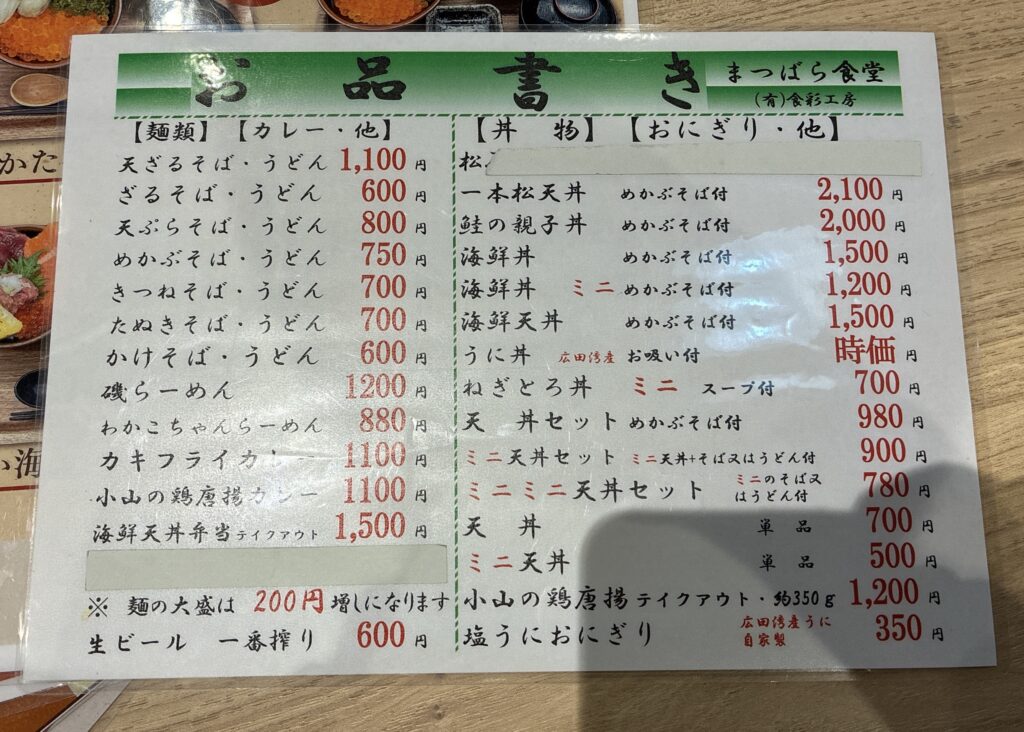 お品書き
まつばら食堂
(有)食彩工房
【麺類】【カレー・他】
天ざるそば・うどん 1,100円
ざるそば・うどん 600円
天ぷらそば・うどん 800円
めかぶそば・うどん 750円
きつねそば・うどん 700円
たぬきそば・うどん 700円
かけそば・うどん 600円
磯らーめん 1200円
わかこちゃんらーめん 880円
カキフライカレー 1100円
小山の鶏唐揚カレー 1100円
海鮮天丼弁当 テイクアウト 1,500円
※ 麺の大盛は 200円増しになります
生ビール 一番搾り 600円
【丼 物】【おにぎり・他】
松
一本松天丼 めかぶそば付 2,100円
鮭の親子丼 めかぶそば付 2,000円
海鮮丼 めかぶそば付 1,500円
海鮮丼 ミニ めかぶそば付 1,200円
海鮮天丼 めかぶそば付 1,500円
うに丼 広田湾産 お吸い付 時価円
ねぎとろ丼 ミニ スープ付 700円
天 丼セット めかぶそば付 980円
ミニ天丼セット ミニ天丼+そば又はうどん付 900円
ミニミニ天丼セット ミニのそば又はうどん付 780円
天 丼 単 品 700円
ミニ天丼 単 品 500円
小山の鶏唐揚 テイクアウト・約350g 1,200円
塩うにおにぎり 広田湾産うに自家製 350円
かた
い海